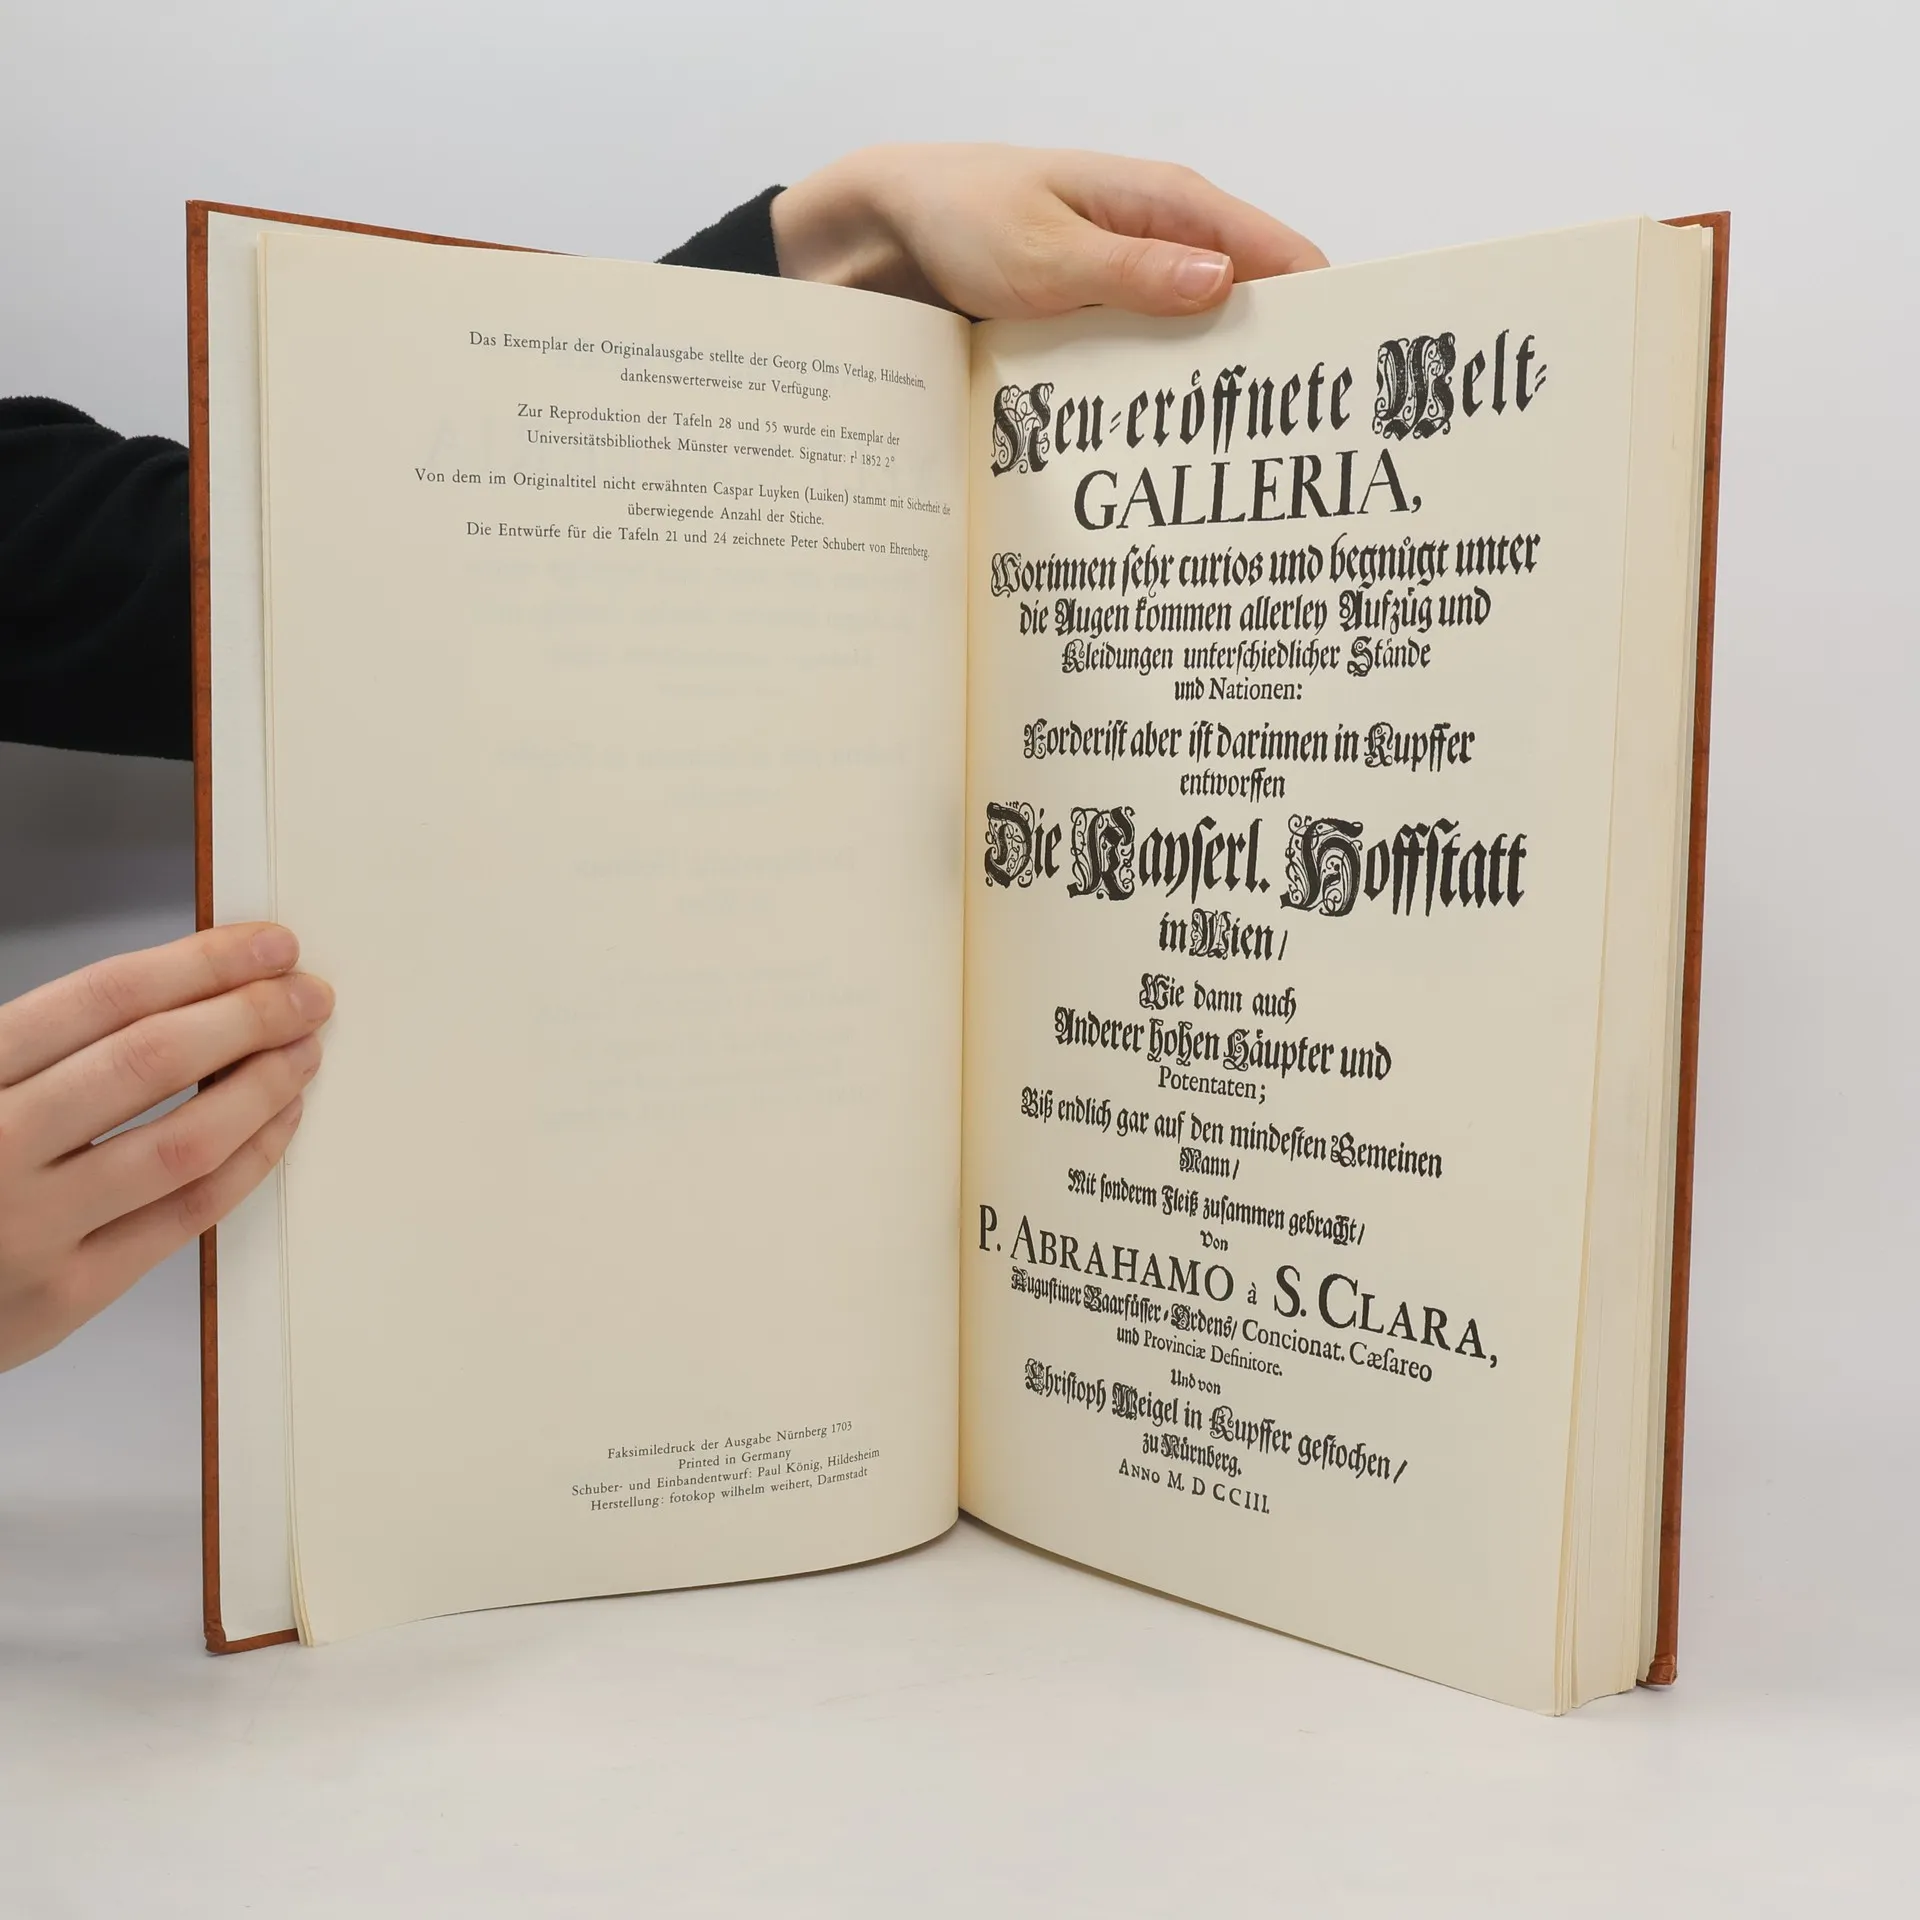 Das Exemplar der Originalausgabe stellte der Georg Olms Verlag, Hildesheim,
dankenswerterweise zur Verfügung.
Zur Reproduktion der Tafeln 28 und 55 wurde ein Exemplar der
Universitätsbibliothek Münster verwendet. Signatur: r¹ 1852 2°
Von dem im Originaltitel nicht erwähnten Caspar Luyken (Luiken) stammt mit Sicherheit die
überwiegende Anzahl der Stiche.
Die Entwürfe für die Tafeln 21 und 24 zeichnete Peter Schubert von Ehrenberg.
Faksimiledruck der Ausgabe Nürnberg 1703
Printed in Germany
Schuber- und Einbandentwurf: Paul König, Hildesheim
Herstellung: fotokop wilhelm weihert, Darmstadt
Neu-eröffnete Welt-
GALLERIA,
Worinnen sehr curios und begnügt unter
die Augen kommen allerley Aufzüg und
Kleidungen unterschiedlicher Stände
und Nationen:
Forderist aber ist darinnen in Kupffer
entworffen
Die Kayserl. Hoffstatt
in Wien/
Wie dann auch
Anderer hohen Häupter und
Potentaten;
Biß endlich gar auf den mindesten Gemeinen
Mann/
Mit sonderm Fleiß zusammen gebracht/
Von
P. ABRAHAMO à S. CLARA,
Augustiner Baarfüsser-Ordens/ Concionat. Cæsareo
und Provinciæ Definitore.
Und von
Christoph Weigel in Kupffer gestochen/
zu Nürnberg.
ANNO M. DCCIII.